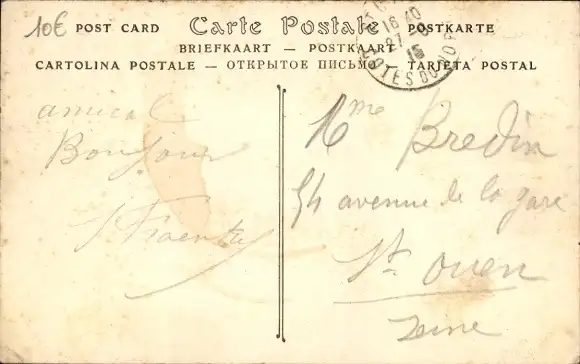 10€ POST CARD Carte Postale POSTKARTE
BRIEFKAART — POSTKAART
CARTOLINA POSTALE — ОТКРЫТОЕ ПИСЬМО — TARJETA POSTAL
16 40
27
15
COTES DU NORD
amical
Bonjour
Mme Bredin
54 avenue de la gare
St. Ouen
Seine